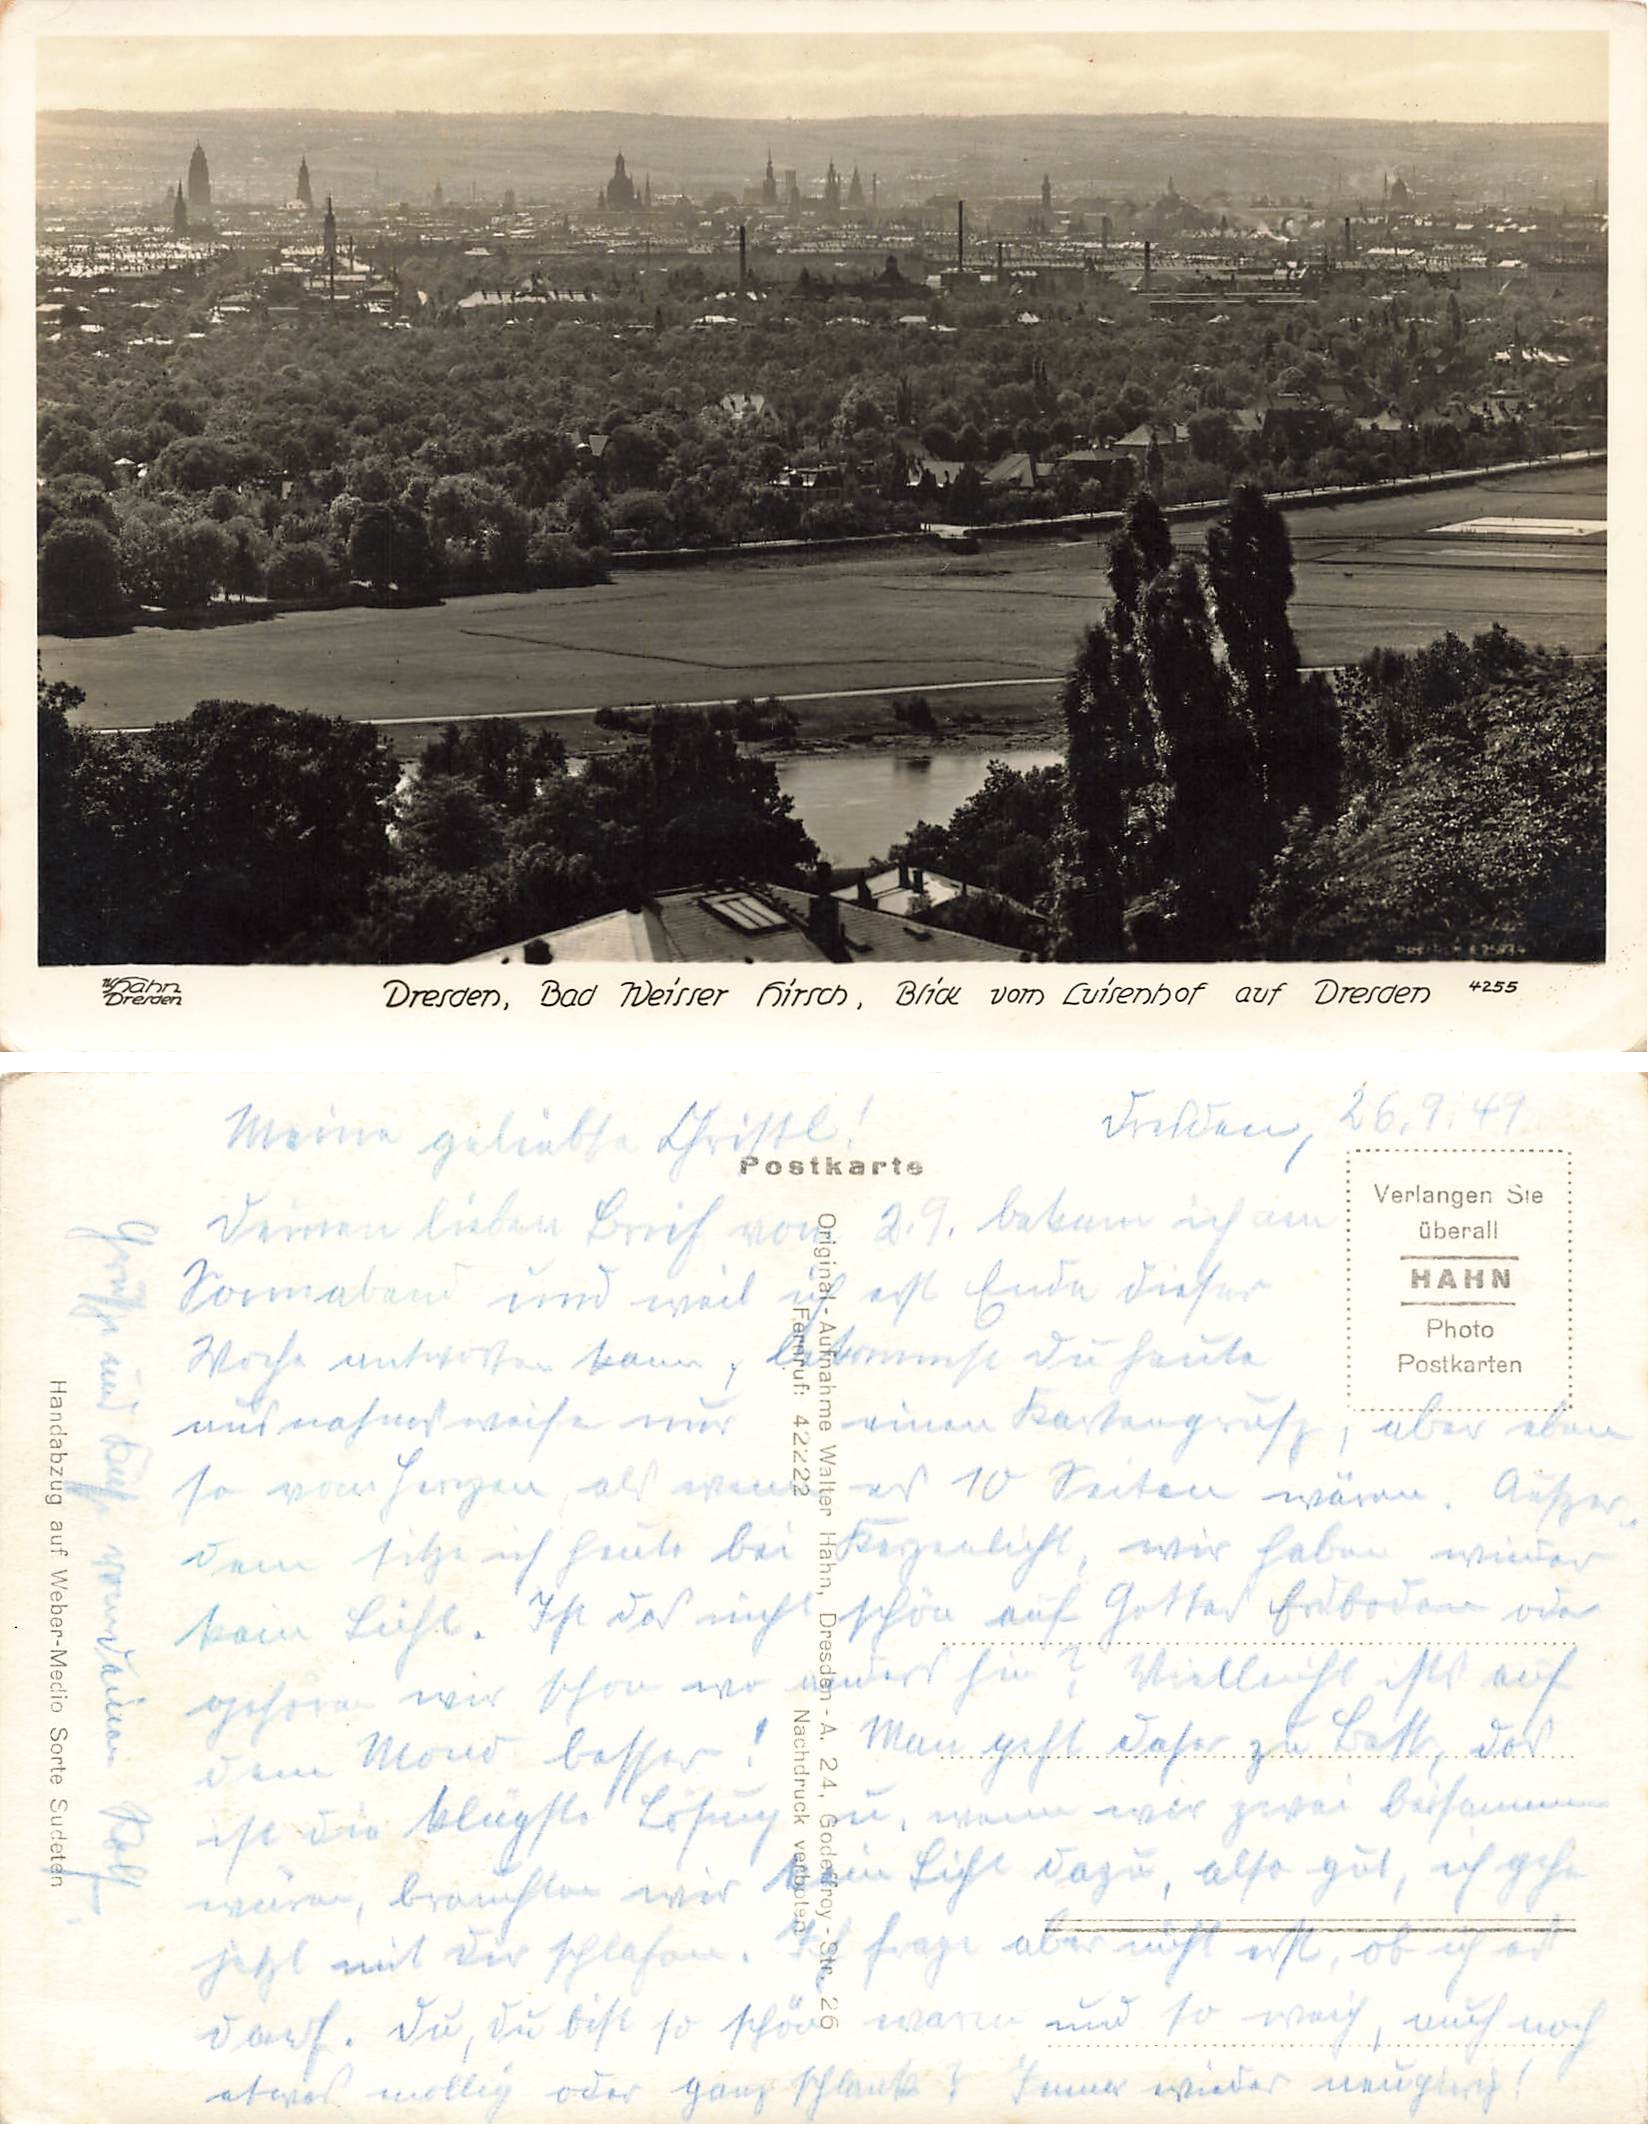 W. Hahn
Dresden
Dresden, Bad Weisser Hirsch, Blick vom Luisenhof auf Dresden 4255
Meine geliebte Christl!
Dresden, 26.9.49
Postkarte
Verlangen Sie
überall
HAHN
Photo
Postkarten
Deinen lieben Brief vom 2.9. bekam ich am
Sonnabend und weil ich erst Ende dieser
Woche antworten kann, bekommst Du heute
ausnahmsweise nur einen Kartengrusz, aber eben
so von Herzen, als wenn es 10 Seiten wären. Auszer-
dem sitze ich heute bei Kerzenlicht, wir haben wieder
kein Licht. Ist das nicht schön auf Gottes Erdboden oder
gehören wir schon wo anders hin? Vielleicht ists auf
dem Mond besser! Man geht daher zu Bett, das
ist die klügste Lösung u, wenn wir zwei beisammen
wären, brauchten wir kein Licht dazu, also gut, ich gehe
jetzt mit Dir schlafen. Ich frage aber nicht erst, ob ich es
darf. Du, Du bist so schön warm und so weich, auch noch
etwas mollig oder ganz schlank? Immer wieder neugierig!
Grüße und Küße von Deinem Rolf.
Original-Aufnahme Walter Hahn, Dresden-A. 24, Godeffroy-Str. 26
Fernruf: 42222 Nachdruck verboten
Handabzug auf Weber-Medio Sorte Sudeten